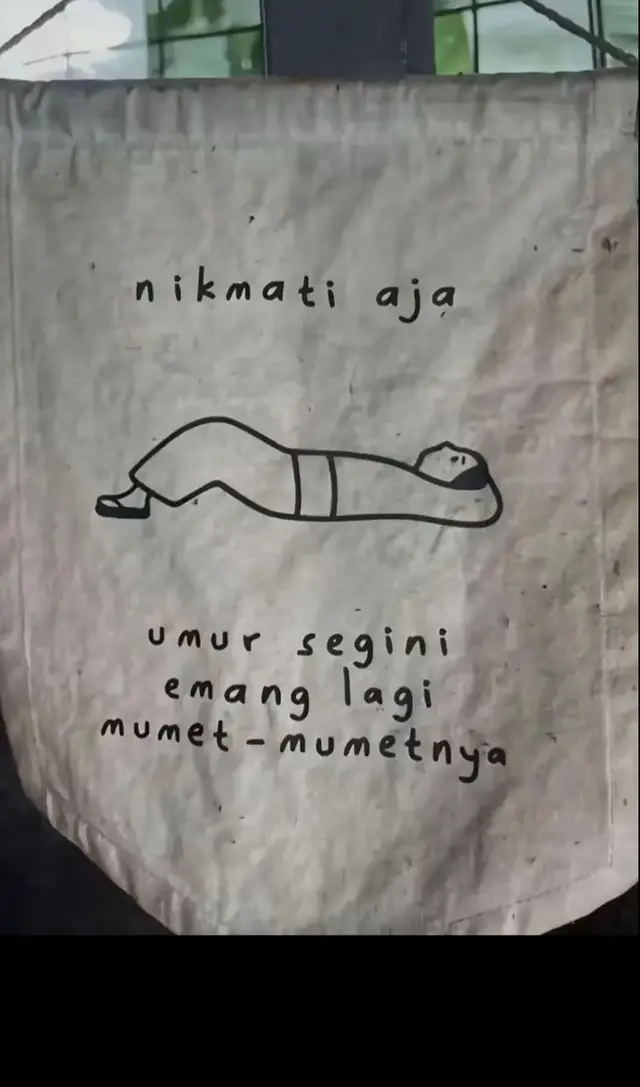 nikmati aja
umur segini
emang lagi
mumet-mumetnya